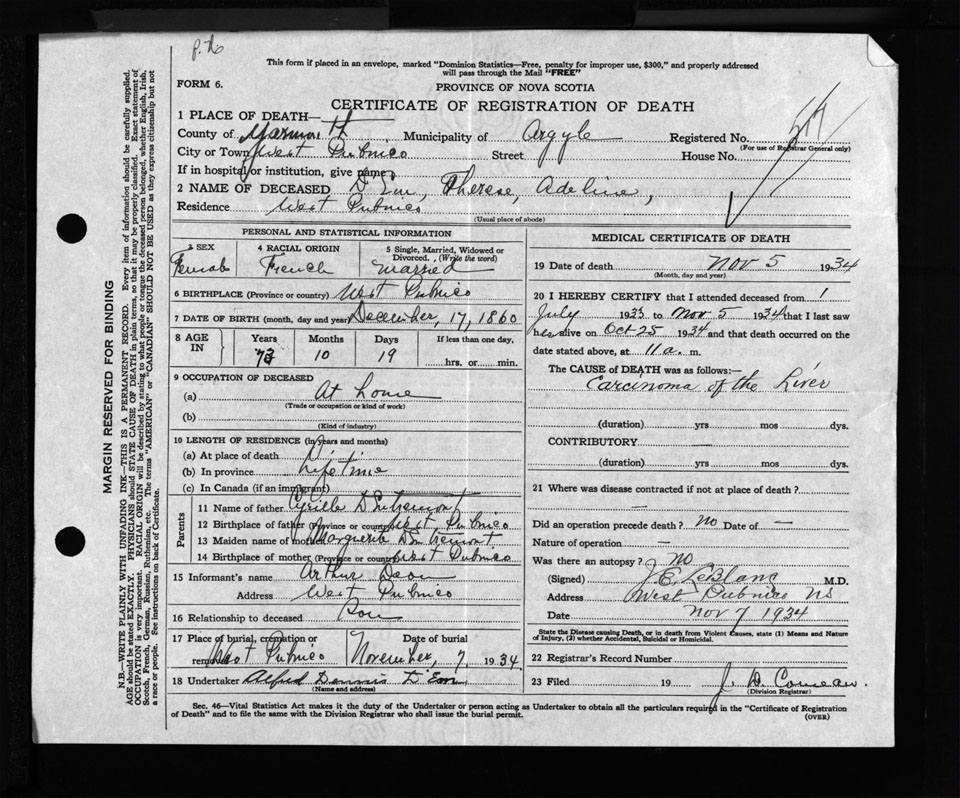 This form if placed in an envelope, marked "Dominion Statistics—Free, penalty for improper use, $300," and properly addressed
will pass through the Mail "FREE"
FORM 6.
PROVINCE OF NOVA SCOTIA
CERTIFICATE OF REGISTRATION OF DEATH
1 PLACE OF DEATH—
County of Yarmouth Municipality of Argyle Registered No.
(For use of Registrar General only)
City or Town West Pubnico Street House No.
If in hospital or institution, give name
2 NAME OF DECEASED D'Eon, Therese, Adeline,
Residence West Pubnico
(Usual place of abode)
PERSONAL AND STATISTICAL INFORMATION
3 SEX 4 RACIAL ORIGIN 5 Single, Married, Widowed or Divorced. (Write the word)
Female French Married
6 BIRTHPLACE (Province or country) West Pubnico
7 DATE OF BIRTH (month, day and year) December, 17, 1860
8 AGE IN Years Months Days If less than one day,
73 10 19 hrs. or min.
9 OCCUPATION OF DECEASED
(a) At home
(Trade or occupation or kind of work)
(b)
(Kind of industry)
10 LENGTH OF RESIDENCE (in years and months)
(a) At place of death
(b) In province Lifetime
(c) In Canada (if an immigrant)
Parents
11 Name of father Cyrille D'Entremont
12 Birthplace of father (Province or country) West Pubnico
13 Maiden name of mother Marguerite D'Entremont
14 Birthplace of mother (Province or country) West Pubnico
15 Informant's name Arthur Deon
Address West Pubnico
16 Relationship to deceased Son
17 Place of burial, cremation or removal West Pubnico Date of burial November, 7, 1934
18 Undertaker Alfred Dennis D'Eon
(Name and address)
MEDICAL CERTIFICATE OF DEATH
19 Date of death Nov 5 1934
(Month, day and year)
20 I HEREBY CERTIFY that I attended deceased from
July 1933 to Nov 5 1934 that I last saw
her alive on Oct 25 1934 and that death occurred on
date stated above, at 11 a. m.
The CAUSE of DEATH was as follows:—
Carcinoma of the Liver
(duration) yrs mos dys.
CONTRIBUTORY —
(duration) yrs mos dys.
21 Where was disease contracted if not at place of death?
—
Did an operation precede death? No Date of —
Nature of operation —
Was there an autopsy? No
(Signed) J. E. LeBlanc M.D.
Address West Pubnico NS
Date Nov 7 1934
State the Disease causing Death, or in death from Violent Causes, state (1) Means and Nature
of Injury, (2) whether Accidental, Suicidal or Homicidal.
22 Registrar's Record Number
23 Filed 19 J. D. Comeau.
(Division Registrar)
Sec. 46—Vital Statistics Act makes it the duty of the Undertaker or person acting as Undertaker to obtain all the particulars required in the "Certificate of Registration
of Death" and to file the same with the Division Registrar who shall issue the burial permit.
(OVER)
MARGIN RESERVED FOR BINDING
N.B.—WRITE PLAINLY WITH UNFADING INK—THIS IS A PERMANENT RECORD. Every item of information should be carefully supplied.
AGE should be stated EXACTLY. PHYSICIANS should STATE CAUSE OF DEATH in plain terms, so that it may be properly classified. Exact statement of
OCCUPATION is very important. RACIAL ORIGIN will be described by stating to what people or tongue the deceased person belonged, whether English, Irish,
Scotch, French, German, Russian, Ruthenian, etc. The terms "AMERICAN" or "CANADIAN" SHOULD NOT BE USED as they express citizenship but not
a race or people. See instructions on back of Certificate.